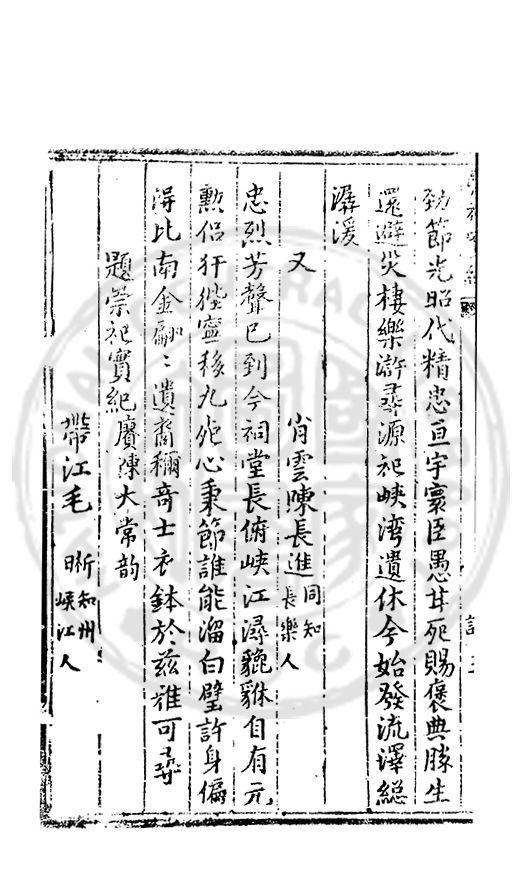 勁節光昭代精忠亘宇寰臣愚甘死賜褒典勝生
還避災棲樂滸尋源祀峽灣遺休今始發流澤總
潺湲
又
肖雲陳長進 同知 長樂人
忠烈芳聲已到今祠堂長俯峽江潯貔貅自有元
勲侶犴狴寧移九死心秉節誰能溜白璧許身偏
得比南金翩〻遺裔稱奇士衣鉢於兹雅可尋
題崇祀實紀賡陳大常韵
帶江毛 昕知州 峽江人